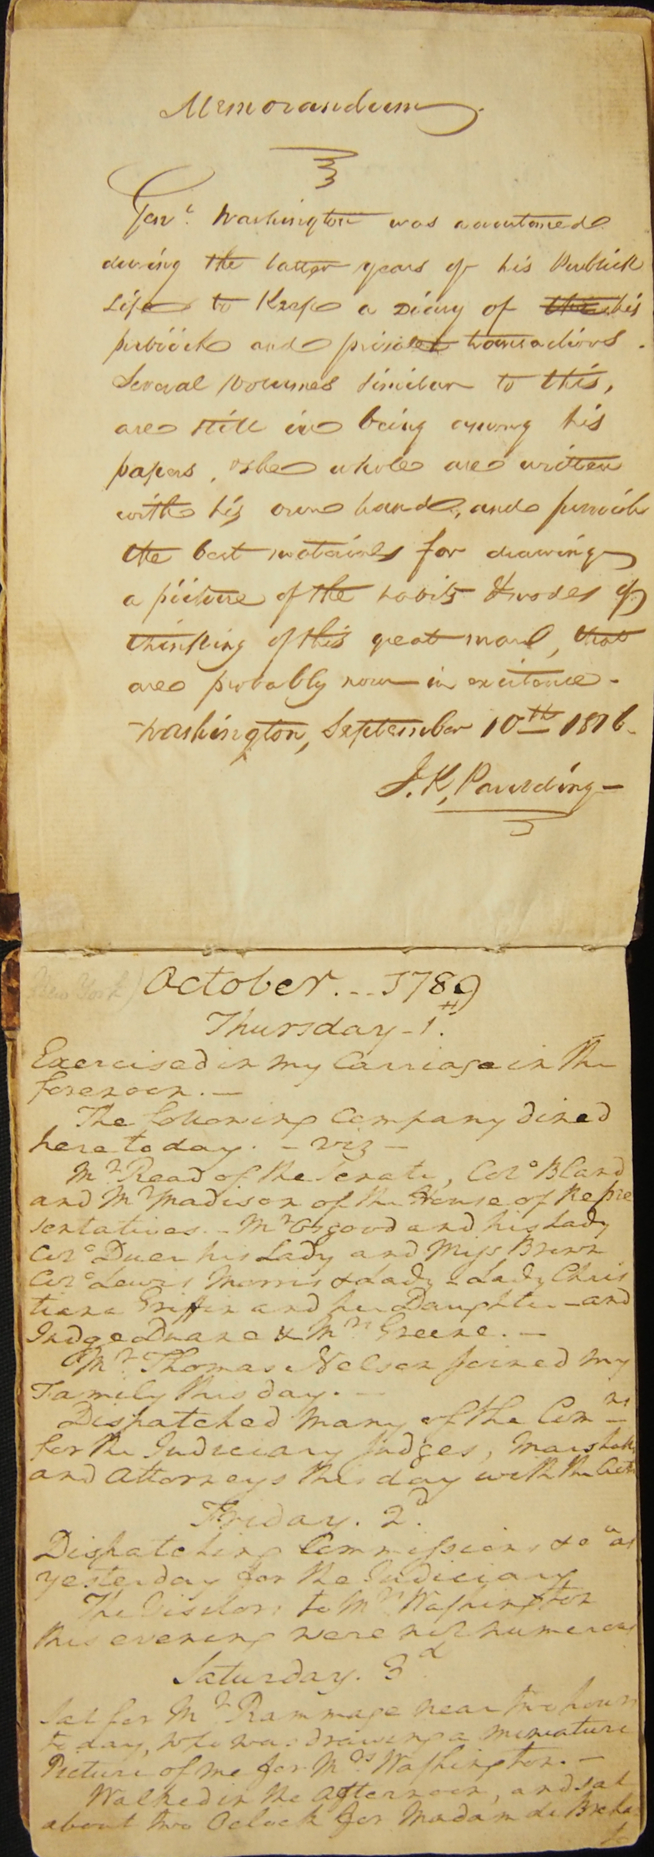 Memorandum
Genl. Washington was accustomed
during the latter years of his Publick
Life to Keep a Diary of this his
publick and private transactions.
Several Volumes similar to this,
are still in being among his
papers. The whole are written
with his own hand, and furnish
the best materials for drawing
a picture of the habits & modes of
thinking of this great man, that
are probably now in existence -
Washington, September 10th 1816.
J. K. Paulding -
New York) October... 1789
Thursday - 1st.
Exercised in my Carriage in the
forenoon. -
The following company dined
here to day. - viz -
Mr. Read of the Senate, Colo. Bland
and Mr. Madison of the House of Repre
sentatives. - Mr. Osgood and his Lady
Colo. Duer his Lady and Miss Brown
Colo. Lewis Morris & Lady - Lady Chris
tiana Griffin and her Daughter - and
Judge Duane & Mrs. Greene. -
Mr. Thomas Nelson joined my
Family this day. -
Dispatched many of the Comns.
for the Judiciary Judges, Marshalls
and Attorneys this day with the Acts
Friday. 2d.
Dispatching Commissions &c. as
yesterday for the Judiciary
The Visitors to Mrs. Washington
this evening were not numerous
Saturday. 3d
Sat for Mr. Rammage near two hours
to day, who was drawing a miniature
Picture of me for Mrs. Washington. -
Walked in the afternoon, and sat
about two Oclock for Madam de Breha